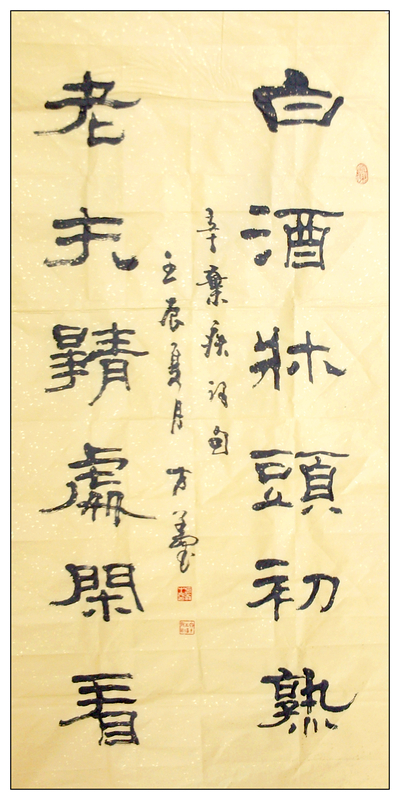 白酒牀頭初熟
辛棄疾詞句
壬辰夏月
老夫靜處閑看